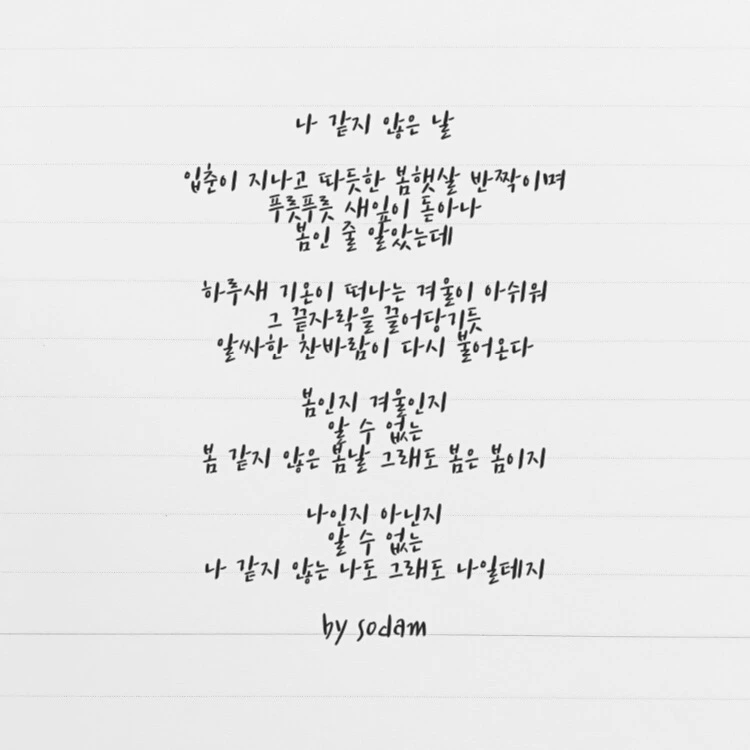 나 같지 않은 날
입춘이 지나고 따듯한 봄햇살 반짝이며
푸릇푸릇 새잎이 돋아나
봄인 줄 알았는데
하루새 기온이 떠나는 겨울이 아쉬워
그 끝자락을 끌어당기듯
알싸한 찬바람이 다시 불어온다
봄인지 겨울인지
알 수 없는
봄 같지 않은 봄날 그래도 봄은 봄이지
나인지 아닌지
알 수 없는
나 같지 않는 나도 그래도 나일테지
by sodam